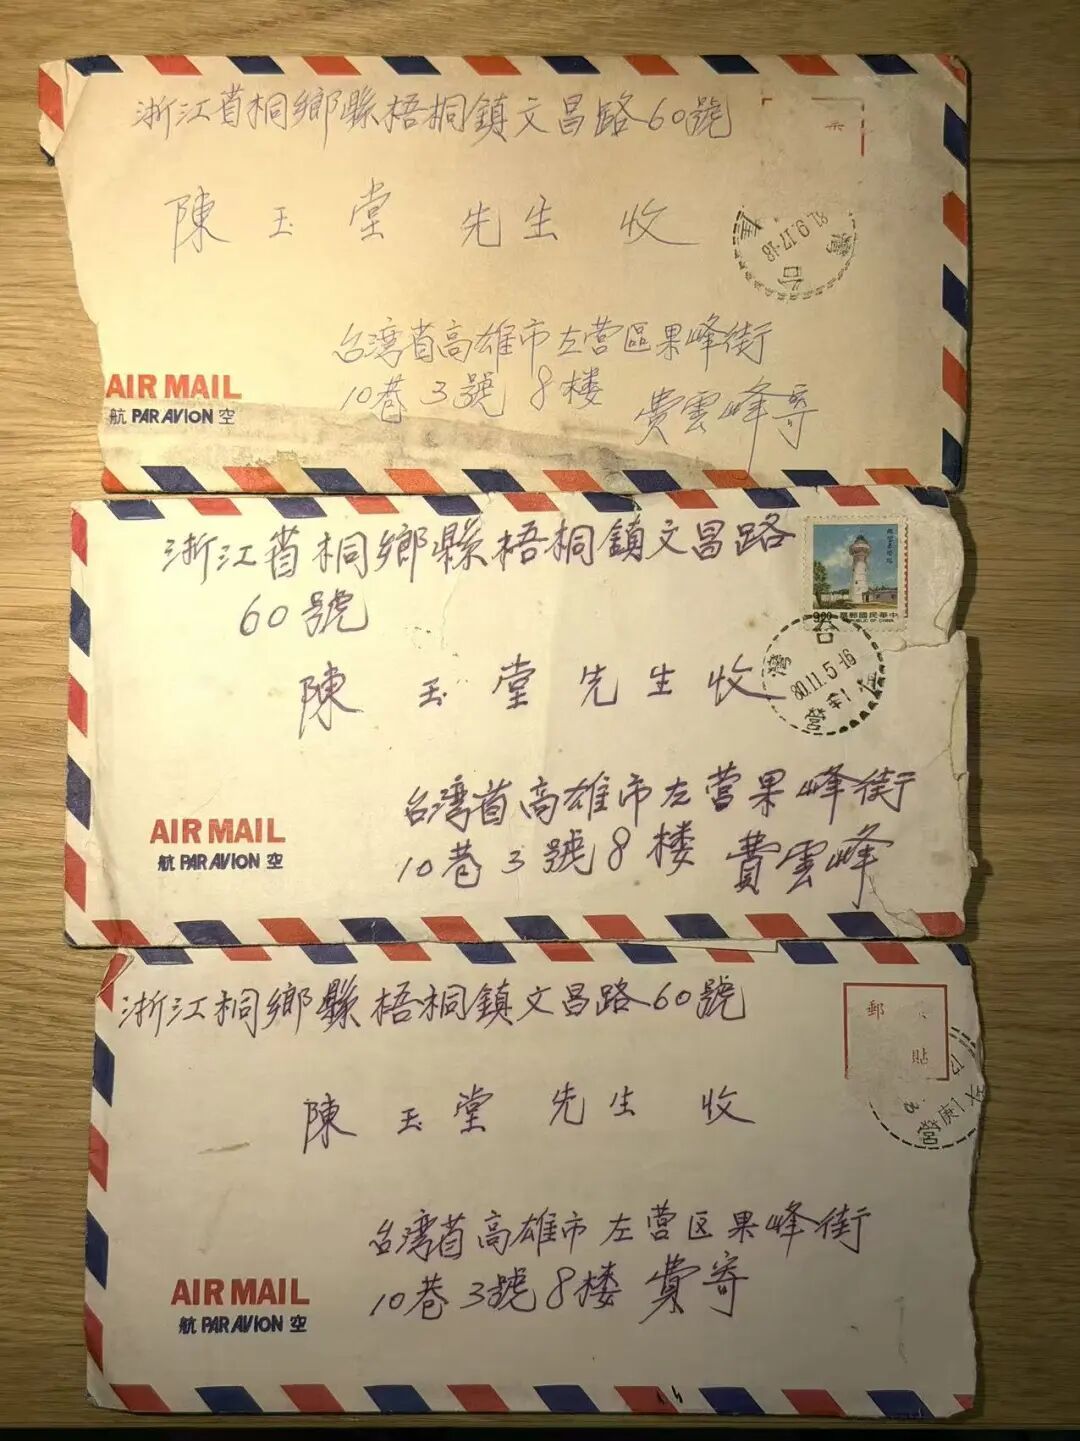 浙江省桐鄉縣梧桐鎮文昌路60號
陳玉堂先生收
台灣
81.9.17-18
台湾省高雄市左营區果峰街
10巷3號8楼 費雲峰寄
AIR MAIL
航 PAR AVION 空
浙江省桐鄉縣梧桐鎮文昌路
60號
9.00 中華民國郵票
REPUBLIC OF CHINA
台灣
80.11.5-16
營
陳玉堂先生收
台湾省高雄市左营果峰街
10巷3號8楼 費雲峰
AIR MAIL
航 PAR AVION 空
浙江桐鄉縣梧桐鎮文昌路60號
郵
貼
營
陳玉堂先生收
台湾省高雄市左营区果峰街
10巷3號8楼 費寄
AIR MAIL
航 PAR AVION 空